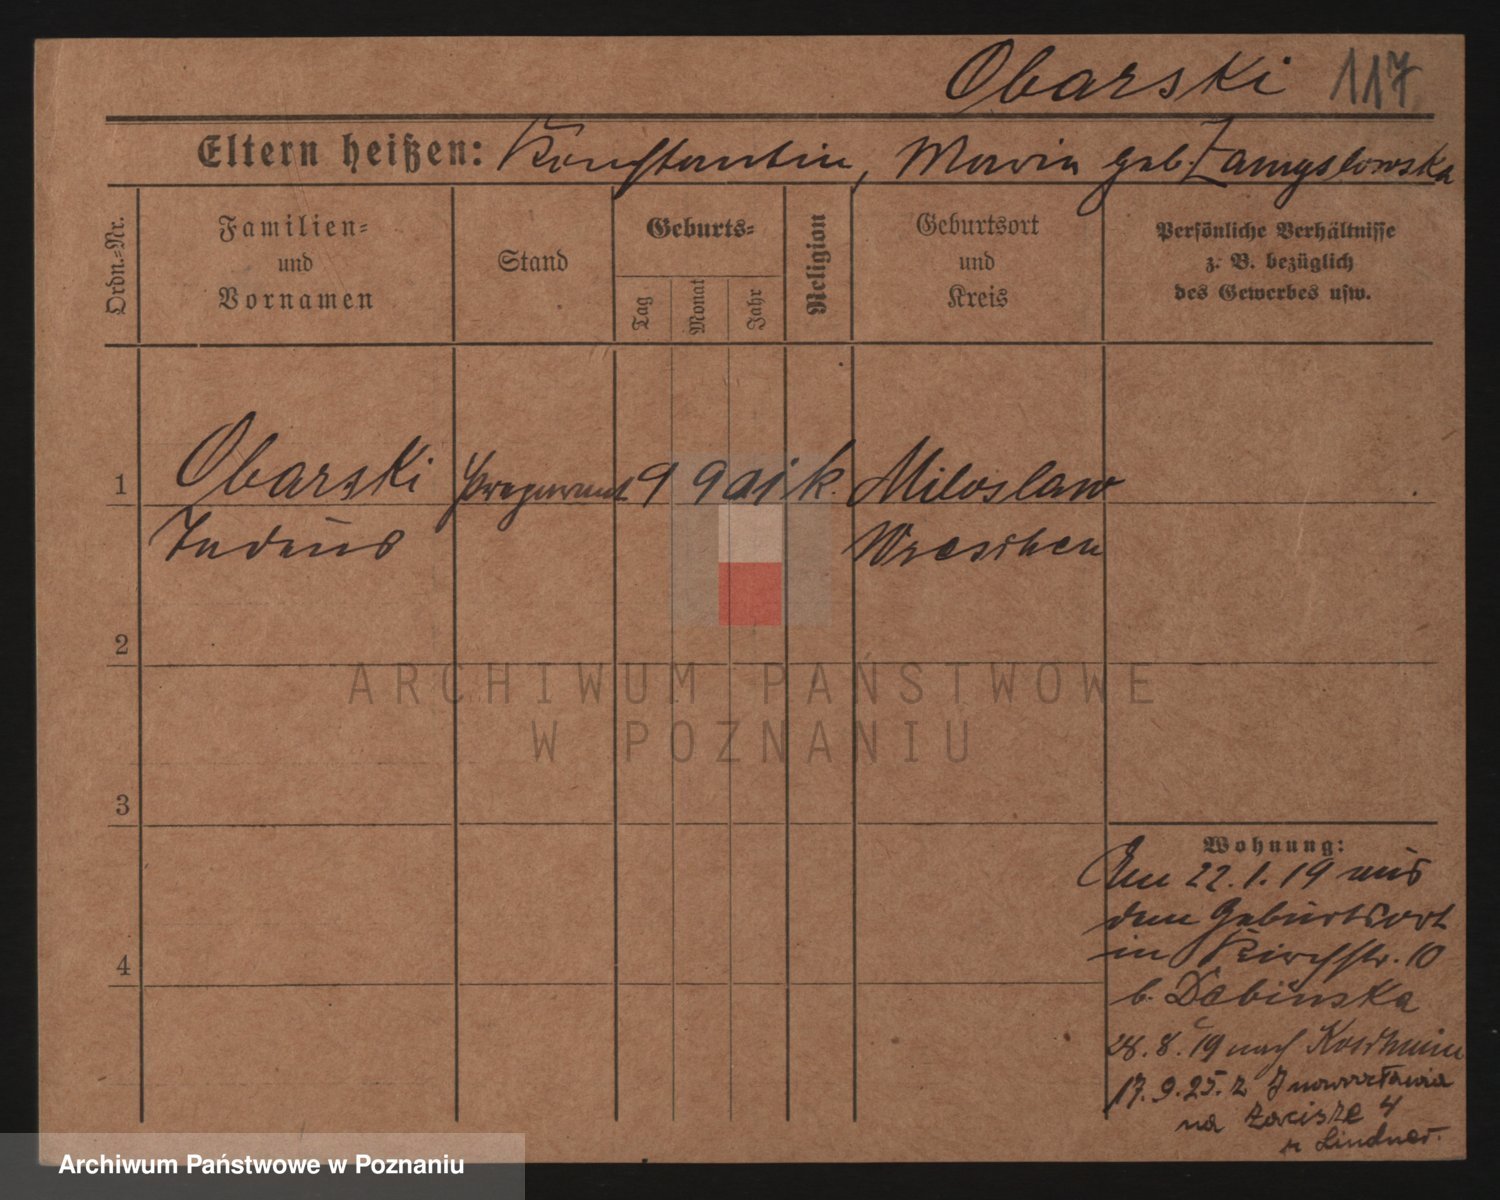 Obarski 117
Eltern heißen: Konstantin, Maria geb. Zamyslowska
Ordn.-Nr.
Familien-
und
Vornamen
Stand
Geburts-
Tag
Monat
Jahr
Religion
Geburtsort
und
Kreis
Persönliche Verhältnisse
z. B. bezüglich
des Gewerbes usw.
1 Obarski Preparand 9 9 01 k. Miloslaw
Tadeus Wreschen
2
3
4
Wohnung:
Am 22.1.19 aus
dem Geburtsort
in Kirchstr. 10
b. Dębinska
28.8.19 nach Koschmin
17.9.25. z Inowrocławia
na Zacisze 4
Lindner.
ARCHIWUM PAŃSTWOWE
W POZNANIU
Archiwum Państwowe w Poznaniu